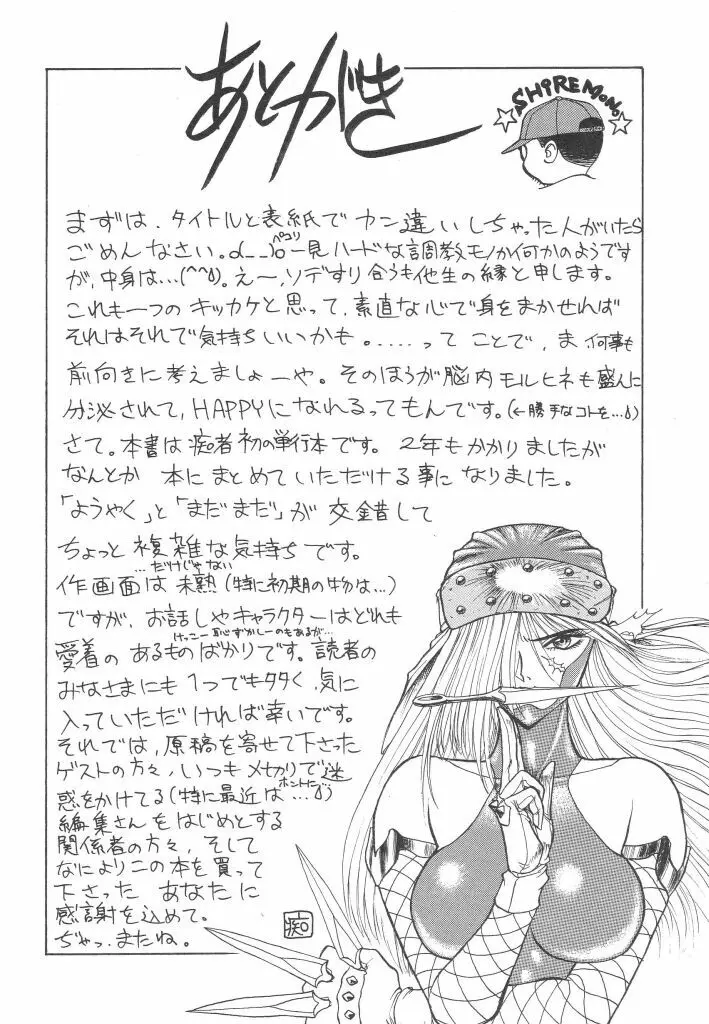 あとがき
SHiREMONO
まずは、タイトルと表紙でカン違いしちゃった人がいたら
ごめんなさい。o(_ _)o ペコリ 一見ハードな調教モノか何かのようです
が、中身は…(^^;)。え〜、ソデすり合うも他生の縁と申します。
これも一つのキッカケと思って、素直な心で身をまかせれば
それはそれで気持ちいいかも。.....って ことで、ま、何事も
前向きに考えましょーや。そのほうが脳内モルヒネも盛んに
分泌されて、HAPPYになれるってもんです。(←勝手なコトを…)
さて。本書は痴者初の単行本です。2年もかかりましたが
なんとか 本にまとめていただける事になりました。
「ようやく」と「まだまだ」が 交錯して
ちょっと 複雑な気持ちです。
…だけじゃない
作画面は未熟(特に初期の物は…)
ですが、お話しやキャラクターはどれも
けっこー恥ずかしーのもあるが…
愛着のあるものばかりです。読者の
みなさまにも1つでも多く、気に
入っていただければ幸いです。
それでは、原稿を寄せて下さった
ゲストの方々、いつも〆切りで迷
ホントに…
惑をかけてる(特に最近は…)
編集さんをはじめとする
関係者の方々、そして
なによりこの本を買って
下さった あなたに
感謝を込めて。
ぢゃっ、またね。
痴